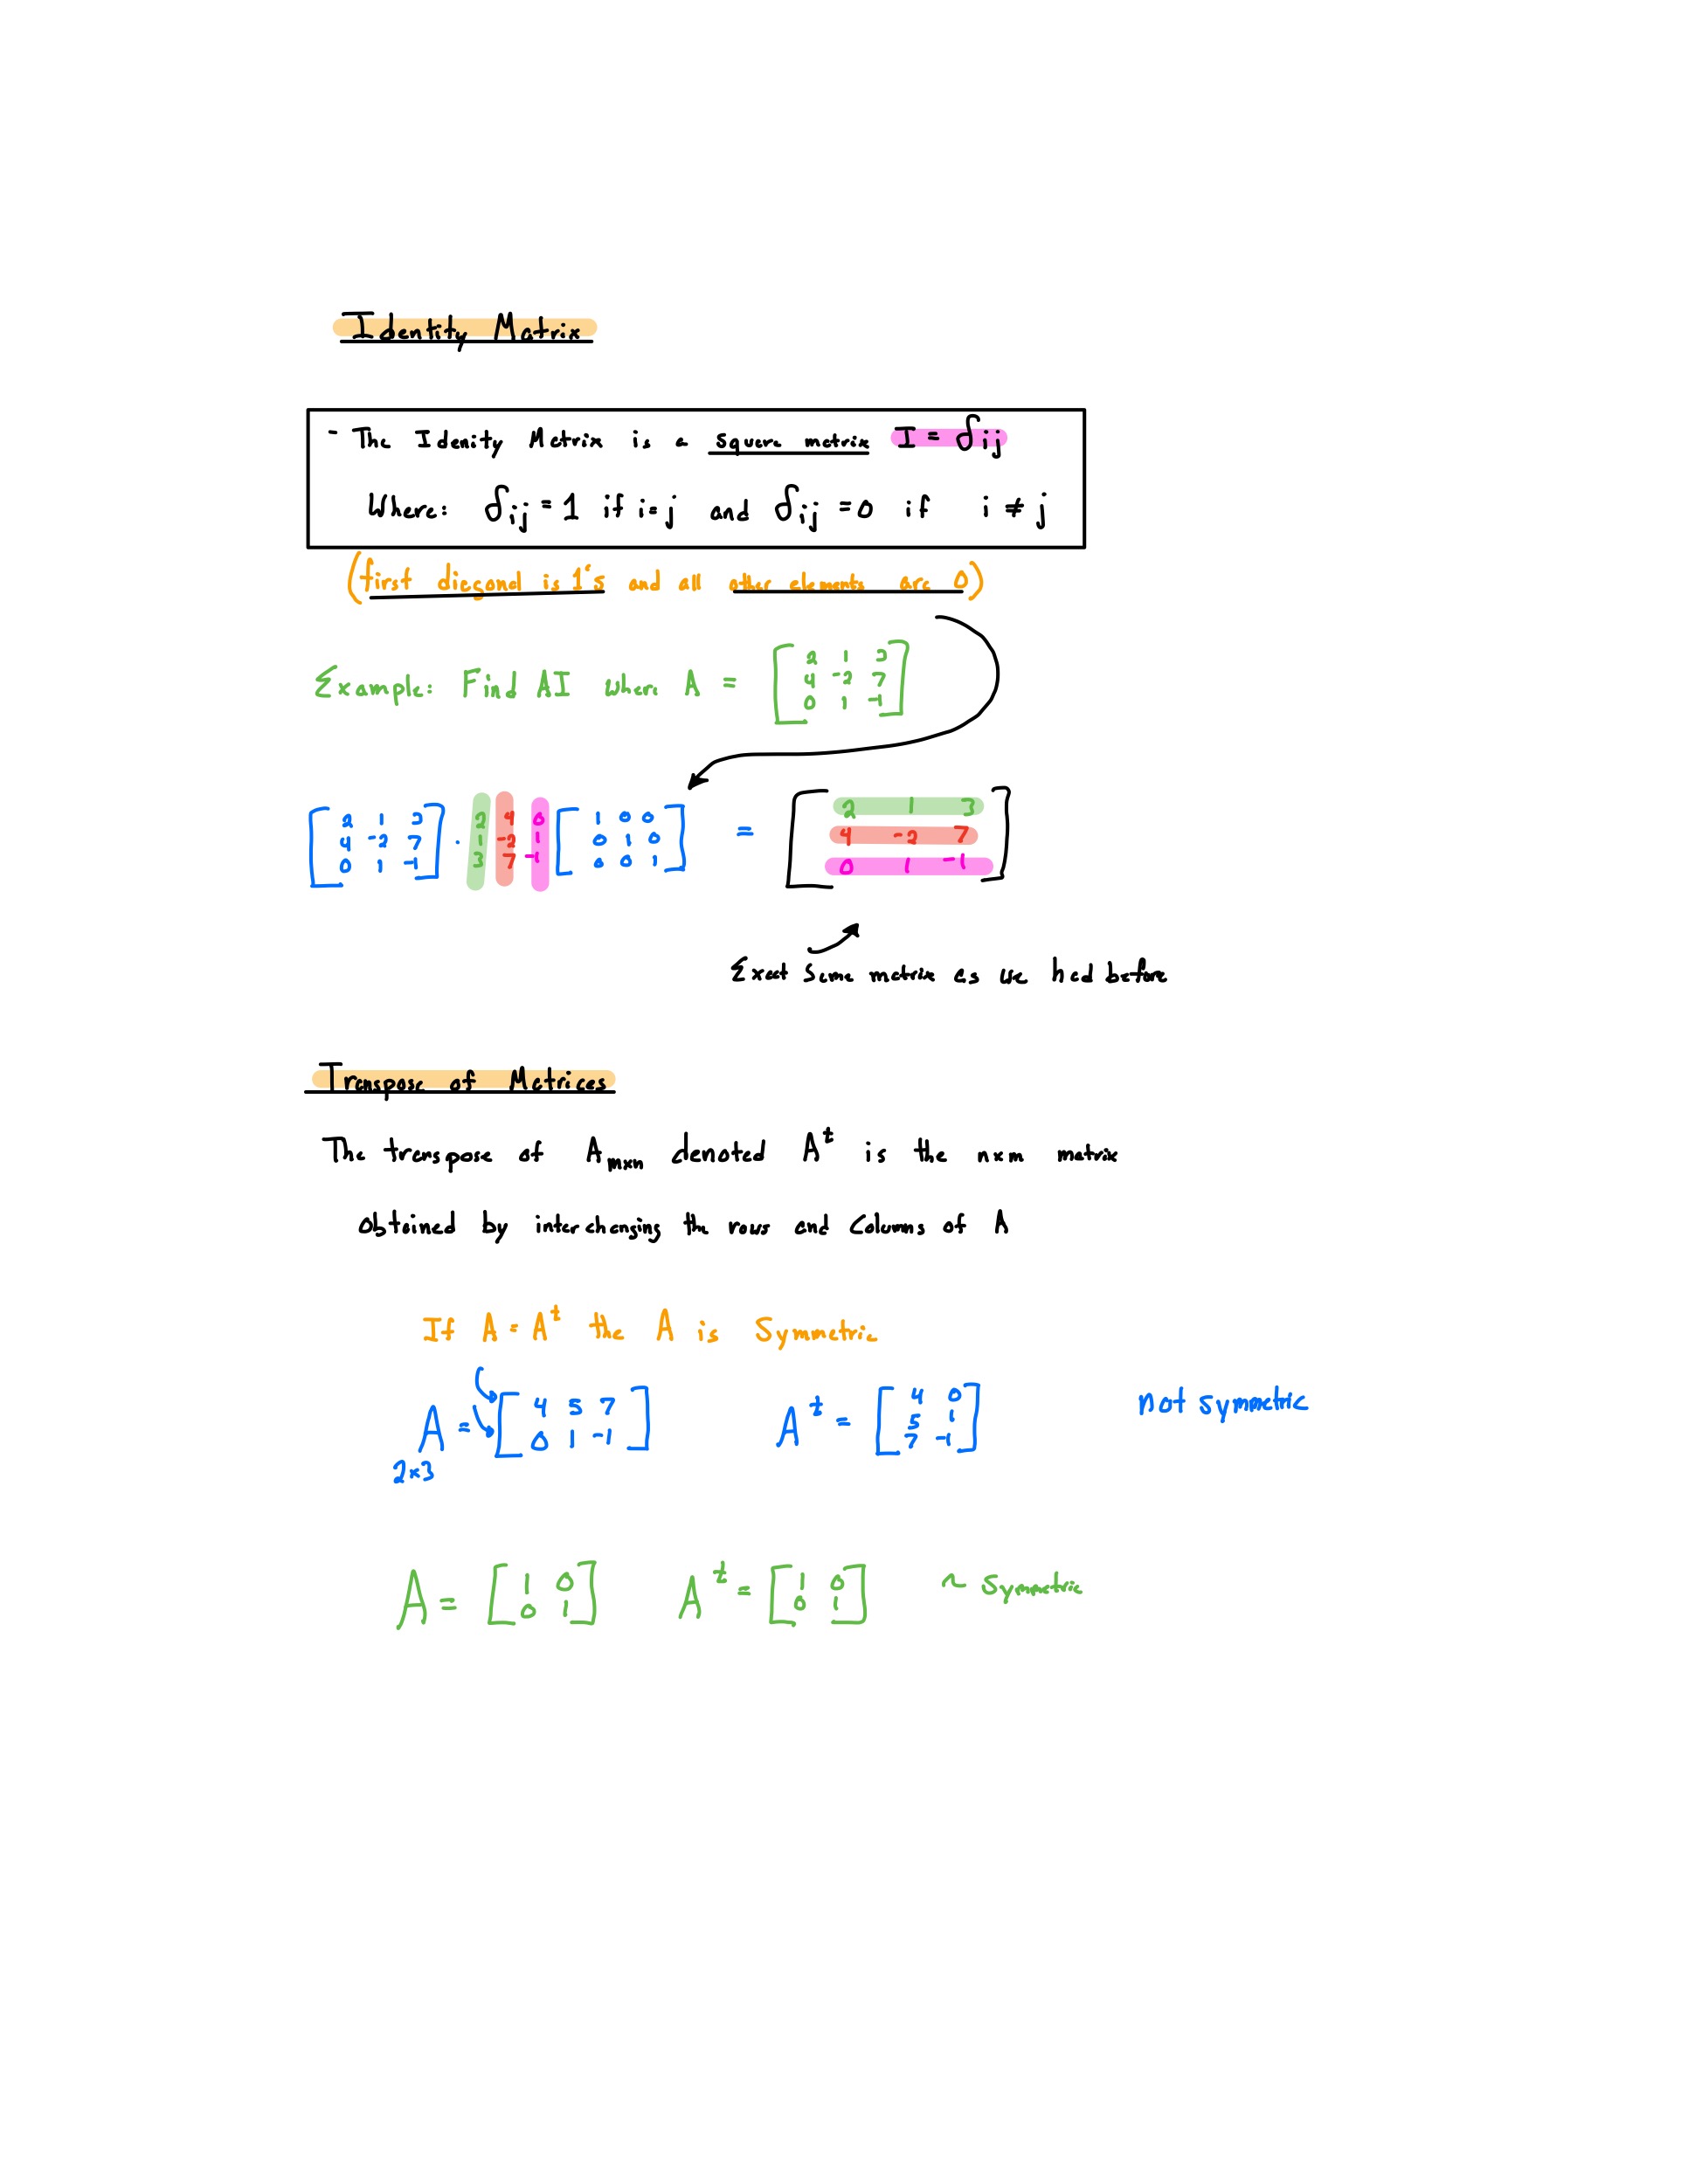 Identity Matrix
- The Idenity Matrix is a square matrix I = δij
Where: δij = 1 if i=j and δij = 0 if i ≠ j
(first diagonal is 1's and all other elements are 0)
Example: Find AI where A = [2 1 3
4 -2 7
0 1 -1]
[2 1 3 · 2 4 0 [1 0 0 = [2 1 3
4 -2 7 1 -2 1 0 1 0 4 -2 7
0 1 -1] 3 7 -1 0 0 1] 0 1 -1]
Exact same matrix as we had before
Transpose of Matrices
The transpose of Amxn denoted Aᵗ is the nxm matrix
obtained by interchanging the rows and columns of A
If A = Aᵗ the A is Symmetric
A = [4 5 7 Aᵗ = [4 0 not symmetric
0 1 -1] 5 1
2x3 7 -1]
A = [1 0 Aᵗ = [1 0 ~ symmetric
0 1] 0 1]